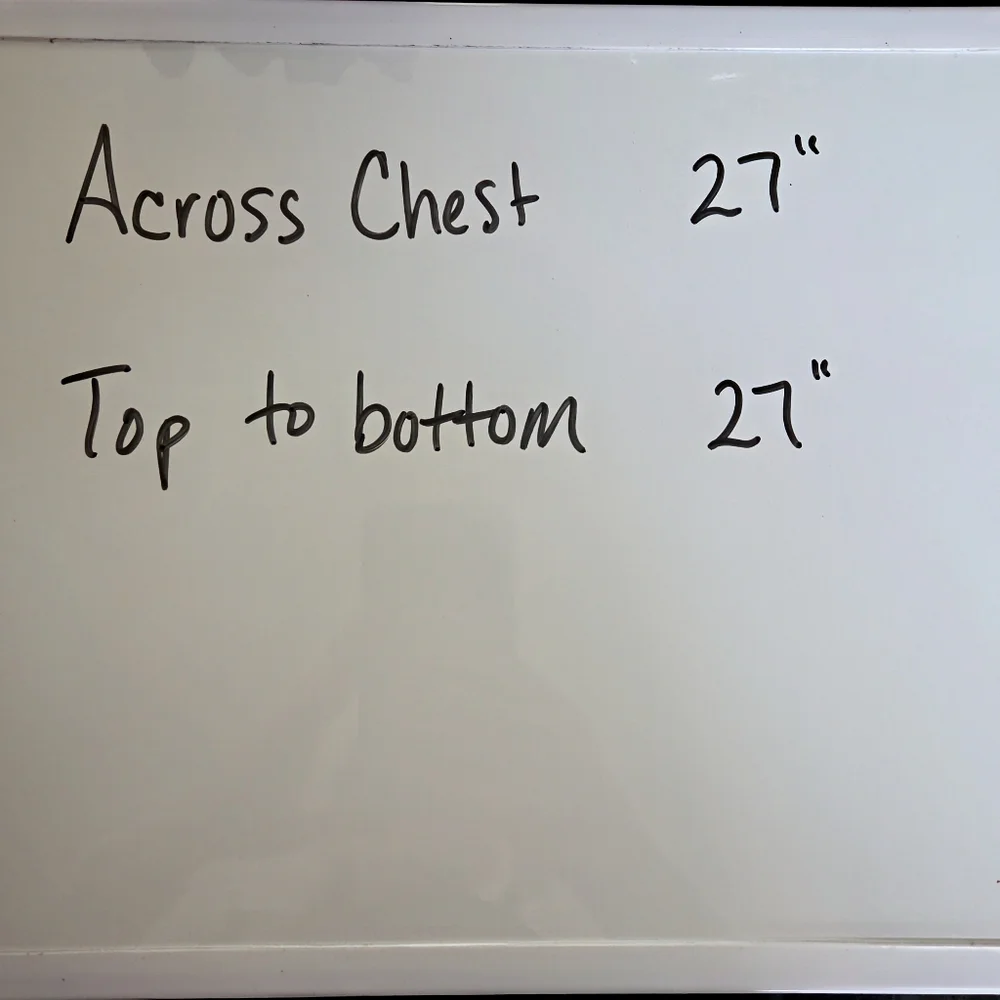 Across Chest 27"
Top to bottom 27"